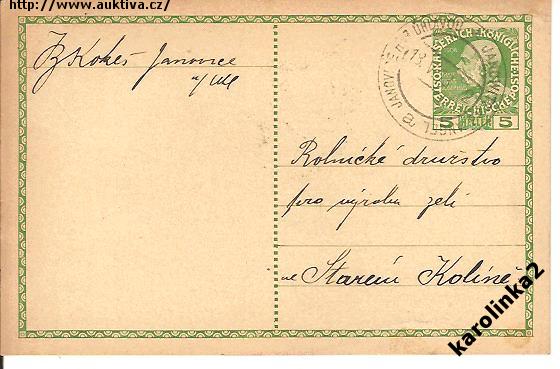 http://www.auktiva.cz/
Jz Kokeš Janovce
n/Uhl
KAISERLICH KÖNIGLICHE
ÖSTERREICHISCHE POST
5 HELLER 5
Rolnické družstvo
pro výrobu zelí
ve Starém Kolíně
karolinka2